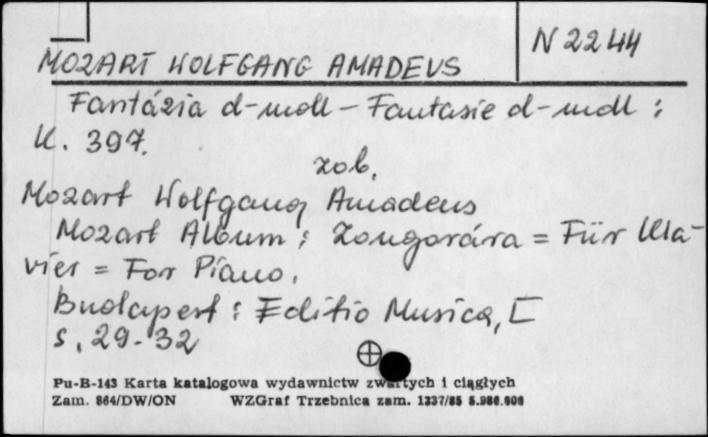 N 2244
MOZART WOLFGANG AMADEUS
Fantázia d-moll - Fantasie d-moll :
K. 397.
zob.
Mozart Wolfgang Amadeus
Mozart Album : Zongorára = Für Kla-
vier = For Piano.
Budapest : Editio Musica, [
s. 29-32
Pu-B-143 Karta katalogowa wydawnictw zwartych i ciągłych
Zam. 864/DW/ON WZGraf Trzebnica zam. 1337/85 5.986.000